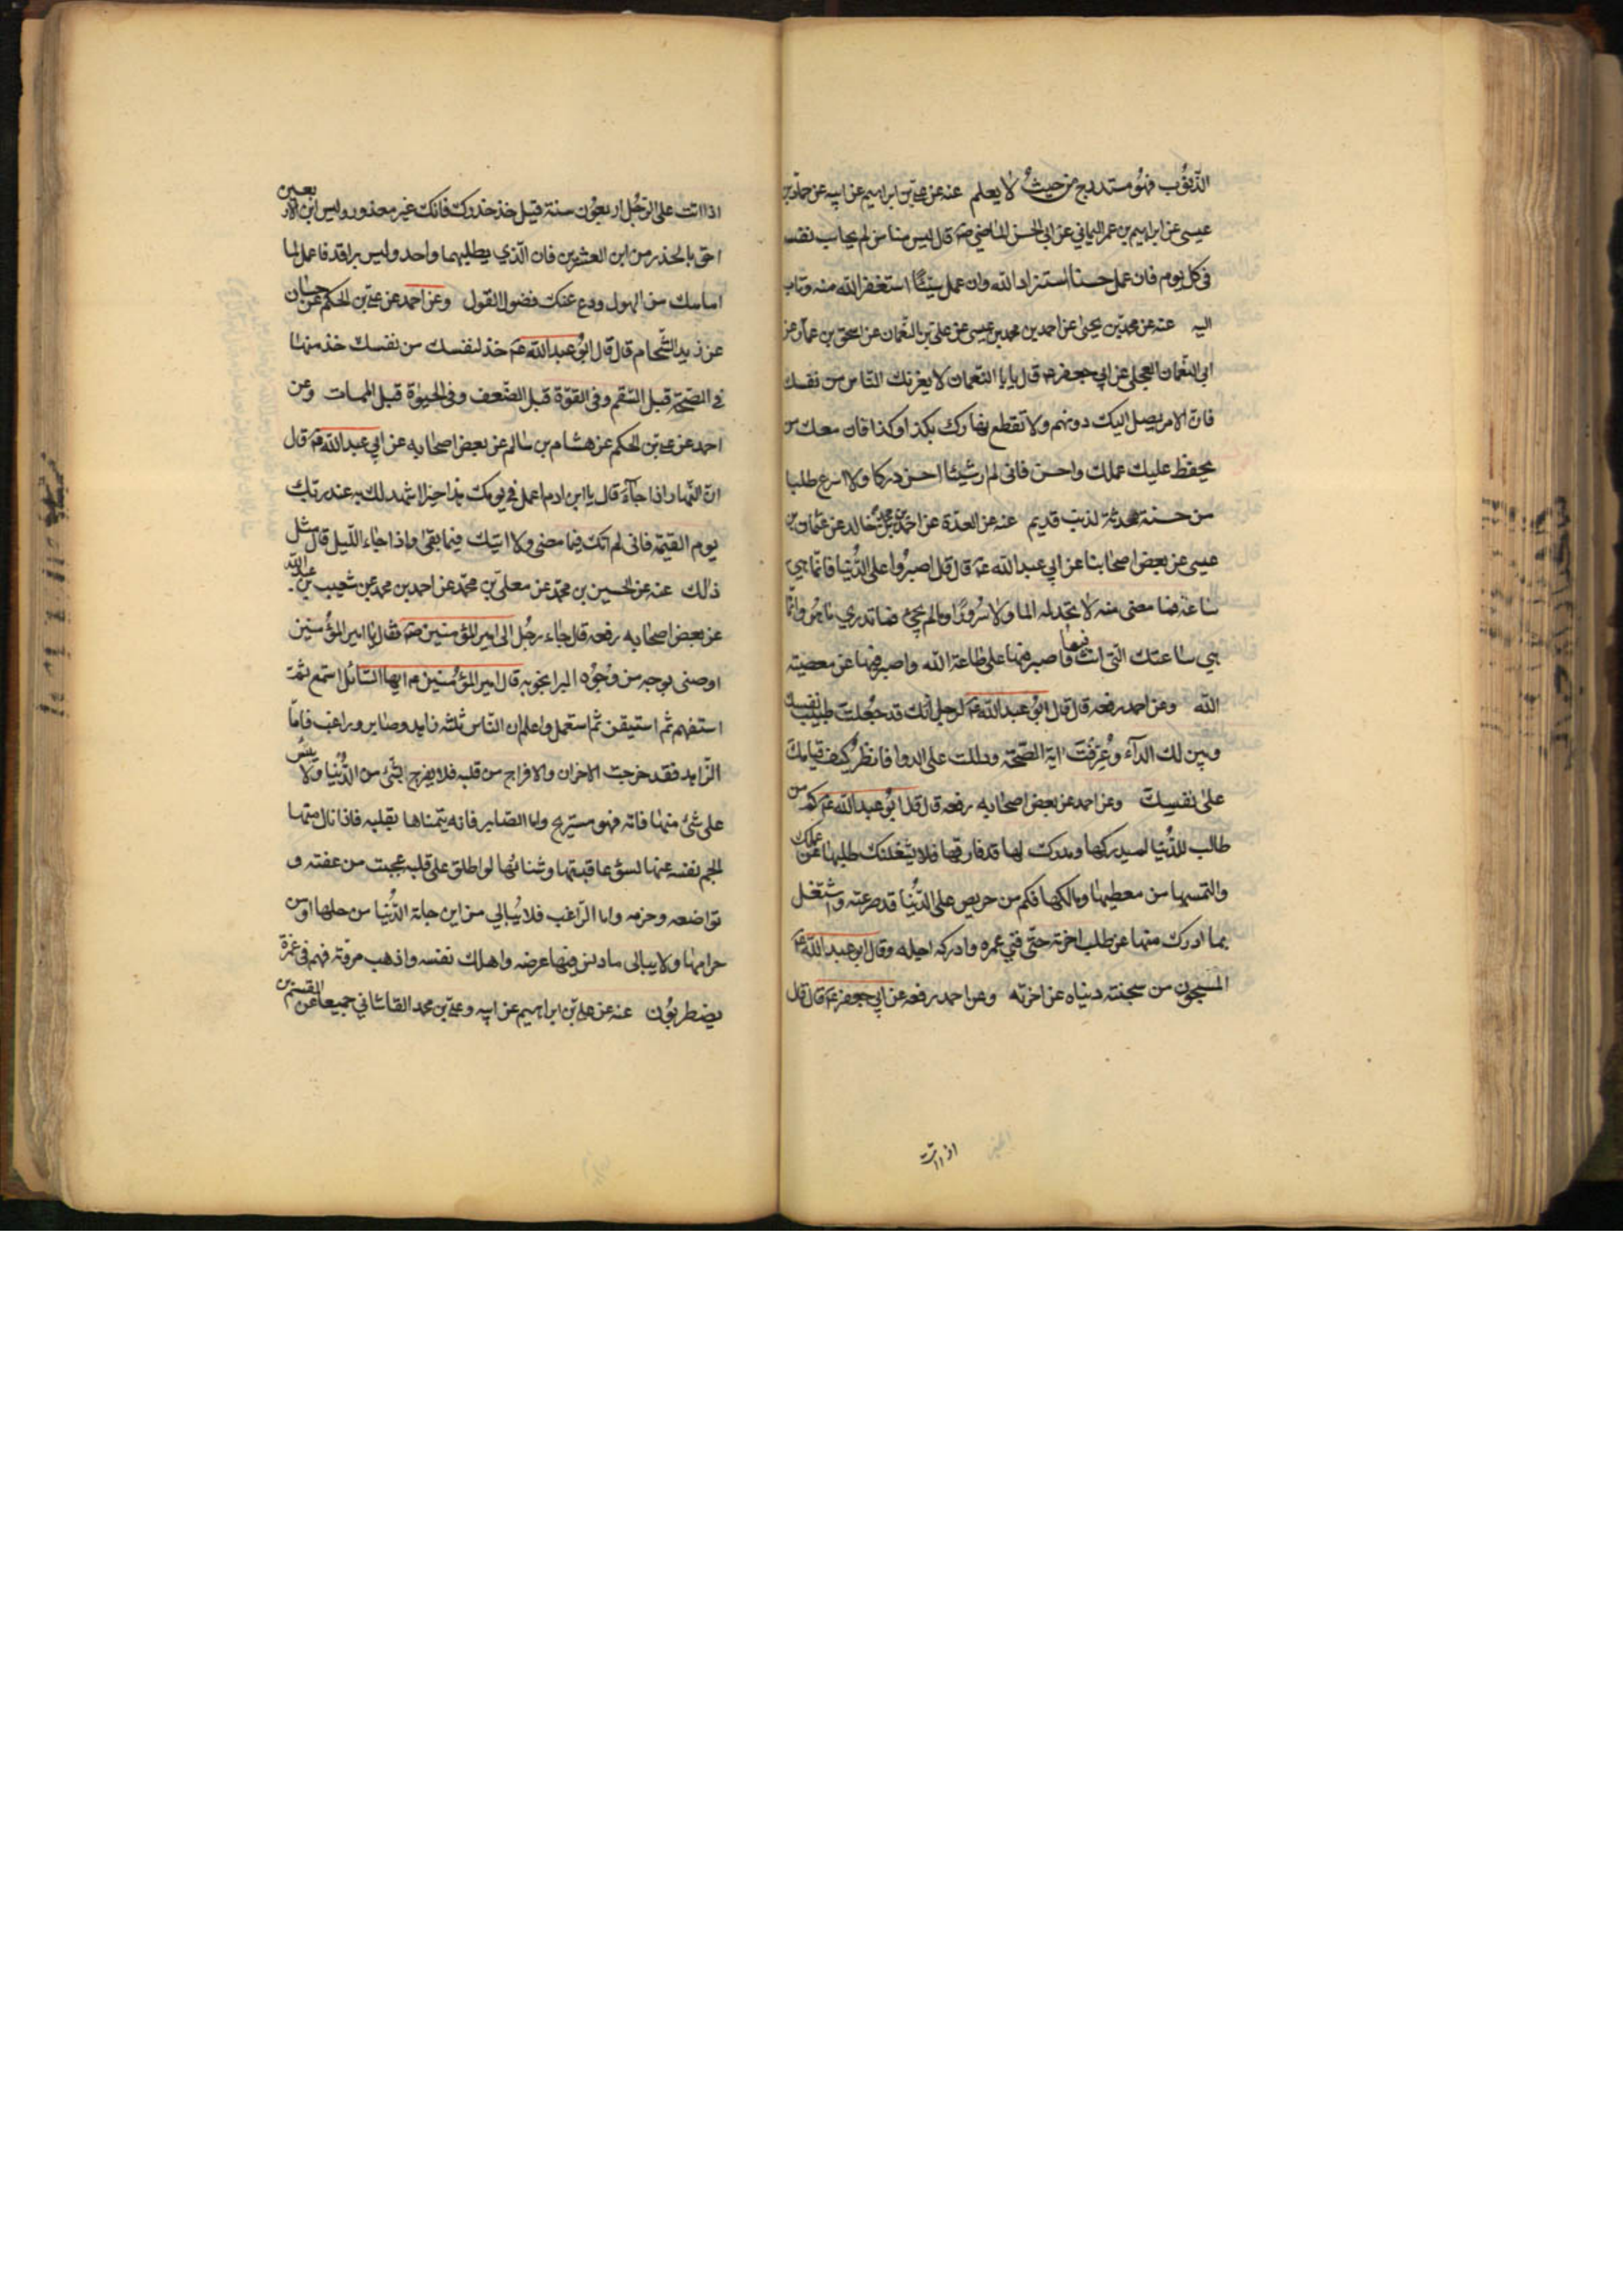 الذنوب فهو مستدرج من حيث لا يعلم عنه عن علي بن ابراهيم عن ابيه عن حماد بن
عيسى عن ابراهيم بن عمر اليماني عن ابي الحسن الماضي صه قال ليس منا من لم يحاسب نفسه
في كل يوم فان عمل حسنا استزاد الله وان عمل سيئا استغفر الله منه وتاب
اليه عنه عن محمد بن يحيى عن احمد بن محمد بن عيسى عن علي بن النعمان عن اسحق بن عمار عن
ابي النعمان العجلي عن ابي جعفر ع قال يا با النعمان لا يغرنك الناس من نفسك
فان الامر يصل اليك دونهم ولا تقطع نهارك بكذا وكذا فان معك من
يحفظ عليك عملك واحسن فاني لم ار شيئا احسن دركا ولا اسرع طلبا
من حسنة محدثة لذنب قديم عنه عن العدة عن احمد بن محمد بن خالد عن عثمان بن
عيسى عن بعض اصحابنا عن ابي عبد الله عه قال قال اصبروا على الدنيا فانما هي
ساعة فما مضى منه لا تجد له الما ولا سرورا وما لم يجئ فما تدري ما هو وانما
هي ساعتك التي انت فيها فاصبر فيها على طاعة الله واصبر فيها عن معصيته
الله وعن احمد رفعه قال قال ابو عبد الله عه لرجل انك قد جعلت طبيب نفسك
وبين لك الداء وعرفت اية الصحة ودللت على الدوا فانظر كيف قيامك
على نفسك وعن احمد عن بعض اصحابه رفعه قال قال ابو عبد الله عه كم من
طالب للدنيا لم يدركها ومدرك لها قد فارقها فلا يشغلنك طلبها عن عملك
والتمسها من معطيها ومالكها فكم من حريص على الدنيا قد صرعته واشتغل
بما ادرك منها عن طلب اخرته حتى فني عمره وادركه اجله وقال ابو عبد الله عه
المسجون من سجنته دنياه عن اخرته وعن احمد رفعه عن ابي جعفر عه قال قال
اذا اتت
اذا اتت على الرجل اربعون سنة قيل خذ حذرك فانك غير معذور وليس ابن الاربعين
احق بالحذر من ابن العشرين فان الذي يطلبهما واحد وليس براقد فاعمل لما
امامك من الهول ودع عنك فضول القول وعن احمد عن علي بن الحكم عن حسان
عن زيد الشحام قال قال ابو عبد الله عه خذ لنفسك من نفسك خذ منها
في الصحة قبل السقم وفي القوة قبل الضعف وفي الحيوة قبل الممات وعن
احمد عن علي بن الحكم عن هشام بن سالم عن بعض اصحابه عن ابي عبد الله عه قال
ان النهار اذا جاء قال يا ابن ادم اعمل في يومك هذا خيرا اشهد لك به عند ربك
يوم القيمة فاني لم اتك فيما مضى ولا اتيك فيما بقى واذا جاء الليل قال مثل
ذلك عنه عن الحسين بن محمد عن معلى بن محمد عن احمد بن محمد عن شعيب بن عبد الله
عن بعض اصحابه رفعه قال جاء رجل الى امير المؤمنين صه فقال يا امير المؤمنين
اوصني بوجه من وجوه البر انجو به قال امير المؤمنين م ايها السائل استمع ثم
استفهم ثم استيقن ثم استعمل واعلم ان الناس ثلثه زاهد وصابر وراغب فاما
الزاهد فقد خرجت الاحزان والافراح من قلبه فلا يفرح بشئ من الدنيا ولا ييئس
على شئ منها فاته فهو مستريح واما الصابر فانه يتمناها بقلبه فاذا نال منها
الجم نفسه عنها لسوء عاقبتها وشنائها لو اطلق على قلبه عجبت من عفته و
تواضعه وحزمه واما الراغب فلا يبالي من اين جاءته الدنيا من حلها او من
حرامها ولا يبالى ما دنس فيها عرضه واهلك نفسه واذهب مروته فهم في غمرة
يضطربون عنه عن علي بن ابراهيم عن ابيه وعلي بن محمد القاشاني جميعا عن القسم بن